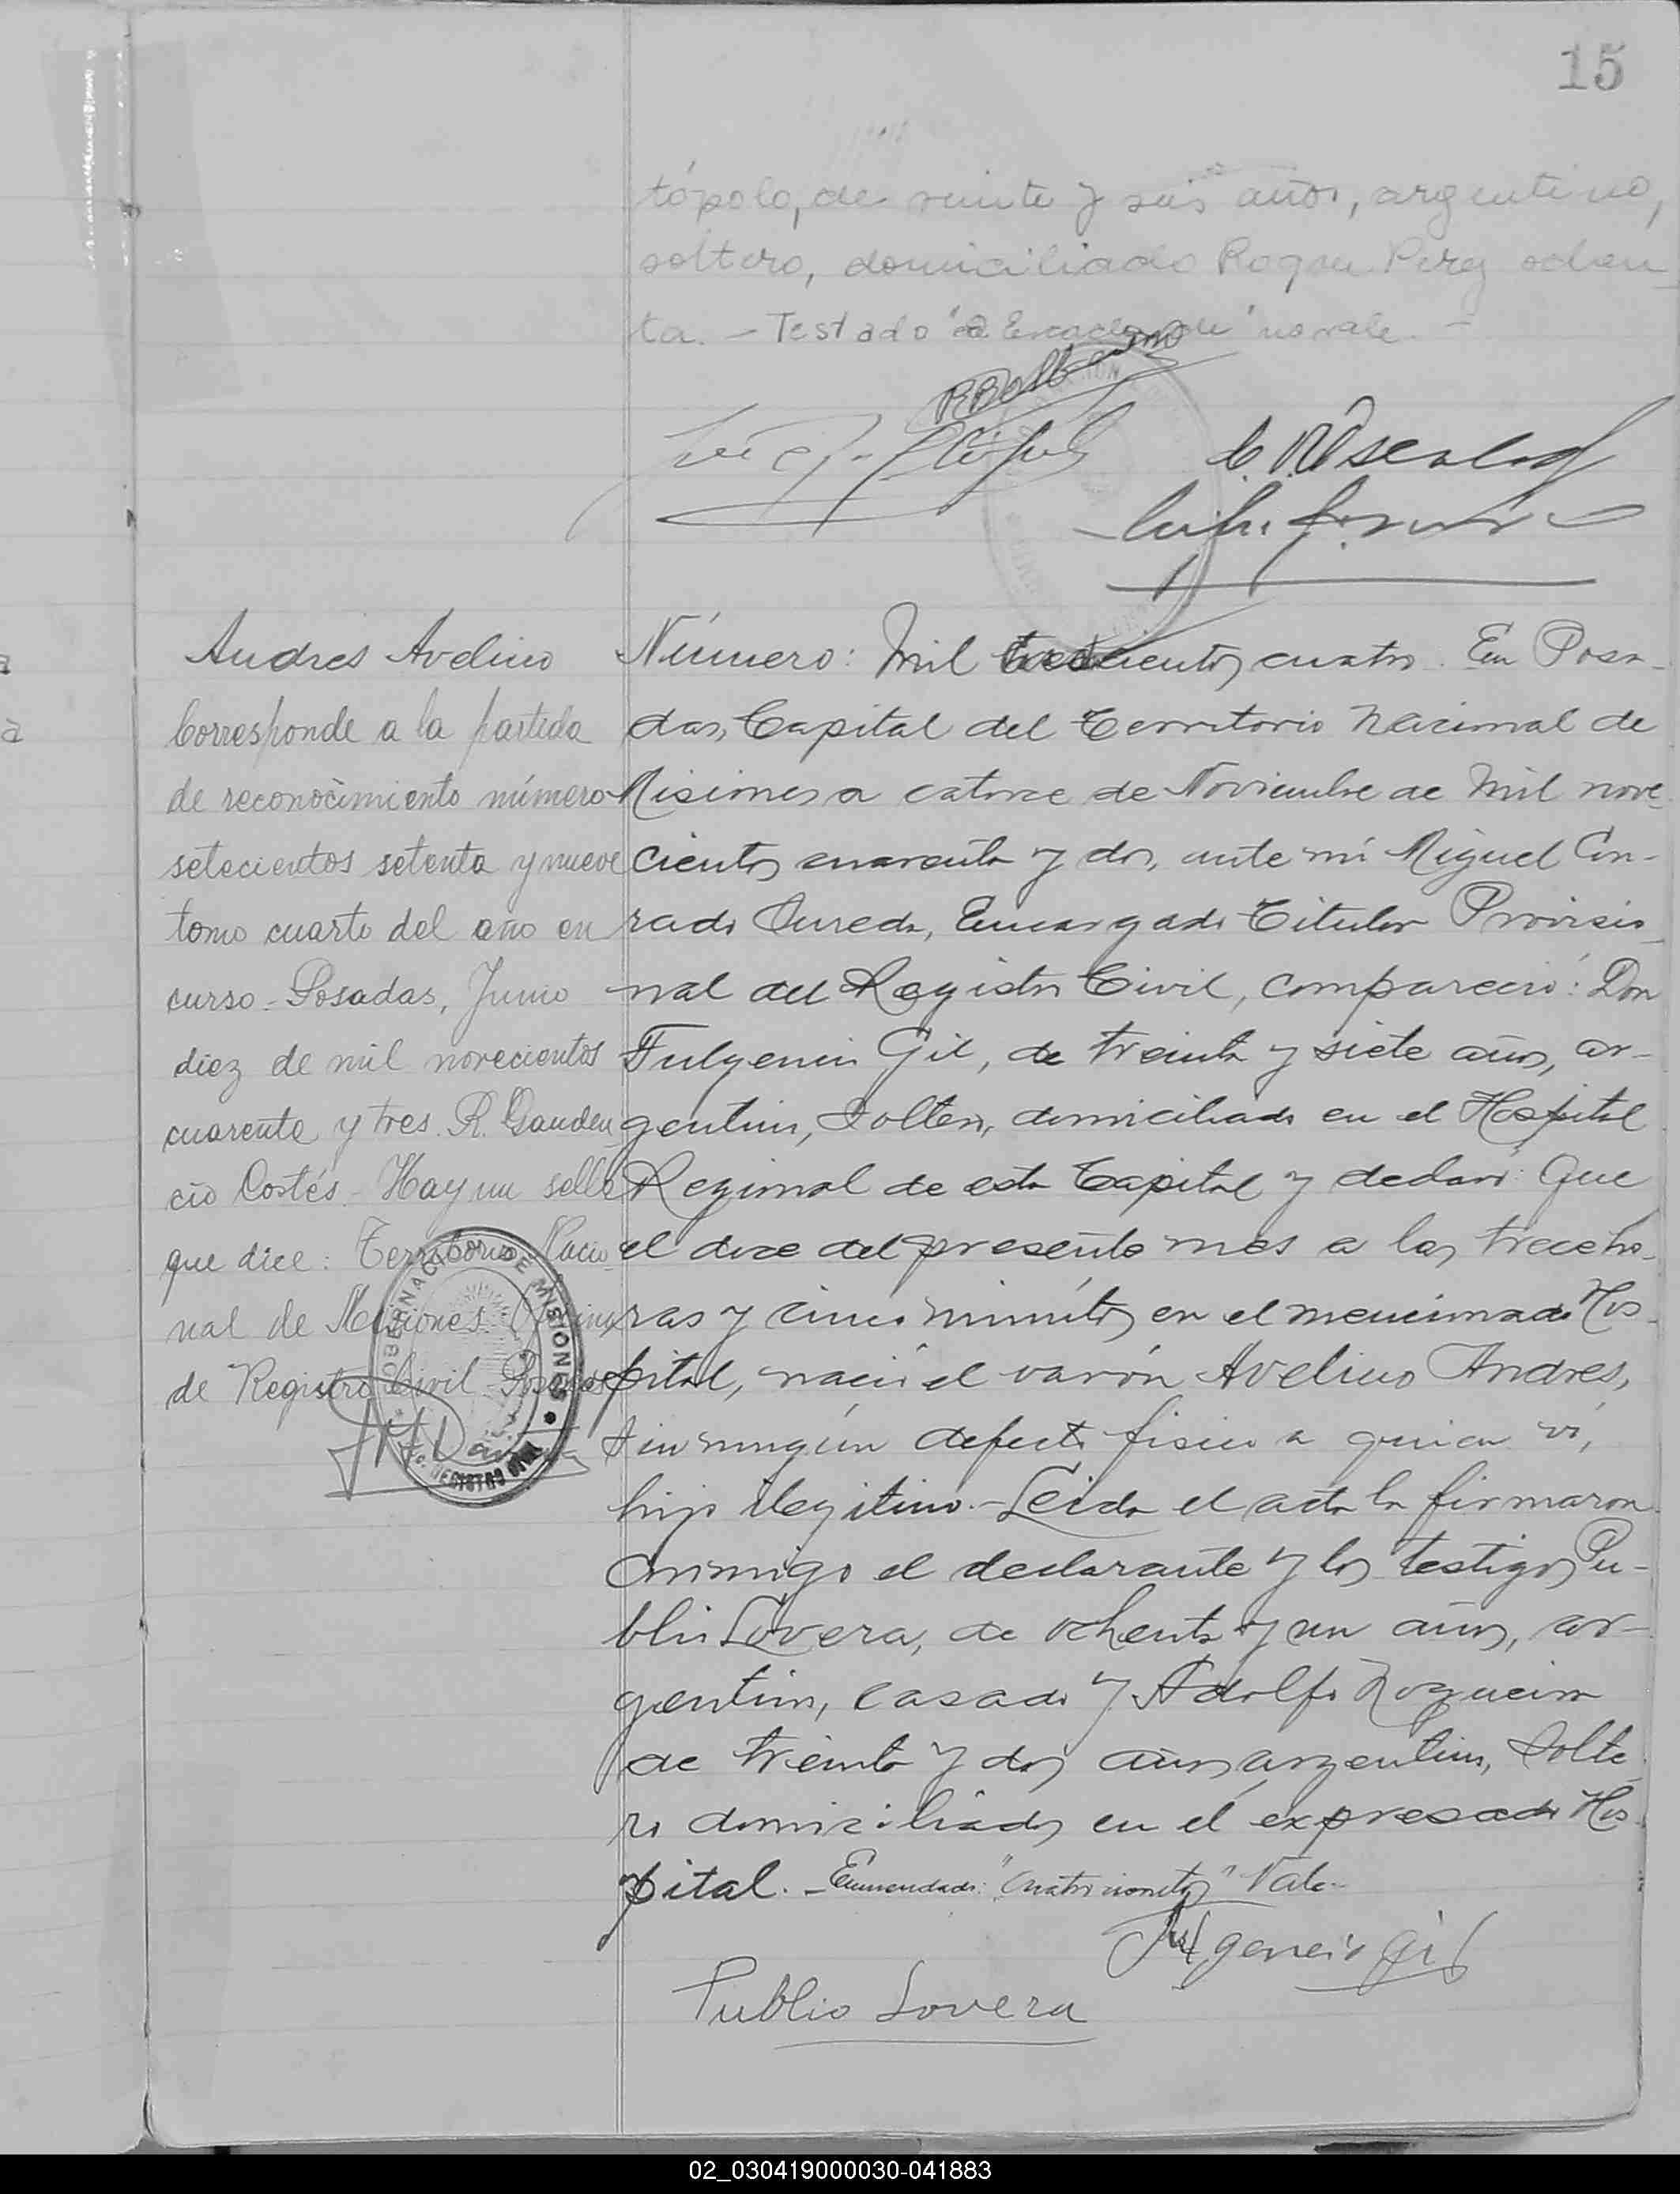 15
tópolo, de veinte y seis años, argentino,
soltero, domiciliado Roque Perez ochen
ta. - Testado " " no vale. -
Andrés Avelino
Corresponde a la partida
de reconocimiento número
setecientos setenta y nueve
tomo cuarto del año en
curso - Posadas, Junio
diez de mil novecientos
cuarenta y tres. R. Gauden
cio Cortés - Hay un sello
que dice: Territorio Nacio
nal de Misiones Oficina
de Registro Civil - Posadas
GOBERNACION DE MISIONES
REGISTRO CIVIL
Número: Mil cuatrocientos cuatro. En Posa-
das, Capital del Territorio Nacional de
Misiones a catorce de Noviembre de Mil nove
cientos cuarenta y dos, ante mi Miguel Con-
rado Sureda, Encargado Titular Provisio
nal del Registro Civil, compareció: Don
Fulgencio Gil, de treinta y siete años, ar-
gentino, soltero, domiciliado en el Hospital
Regional de esta Capital y declaró: Que
el doce del presente mes a las trece ho-
ras y cinco minutos en el mencionado Hos-
pital, nació el varón Avelino Andres,
sin ningún defecto fisico a quien ví,
hijo ilegitimo. - Leida el acta la firmaron
conmigo el declarante y los testigos Pu-
blio Lovera, de ochenta y un años, ar-
gentino, casado y Adolfo Nogueira
de treinta y dos años argentino, solte
ro domiciliados en el expresado Hos-
pital. - Enmendado: "cuatrocientos" Vale-
Fulgencio Gil
Publio Lovera
02_030419000030-041883